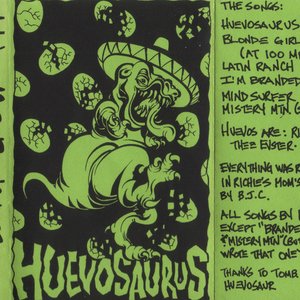 HUEVOSAURUS
THE SONGS:
HUEVOSAURUS
BLONDE GIRL
(AT 100 M
LATIN RANCH
I'M BRANDED
MIND SURFER
MISTERY MTN. (
HUEVOS ARE: R
THEE EYSTER
EVERYTHING WAS R
IN RICHIE'S MOM'S
BY B.J.C.
ALL SONGS BY
EXCEPT "BRANDE
& "MISTERY MTN" (BUT
WROTE THAT ONE
THANKS TO TOMB
HUEVOSAUR